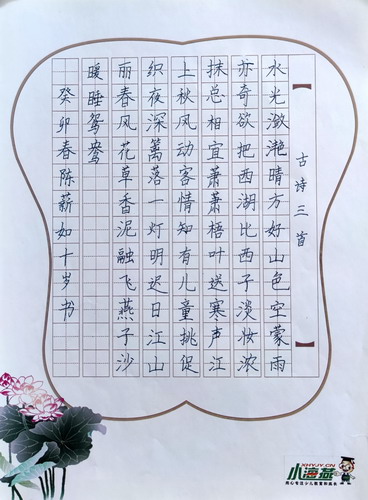 【古诗三首】
水光潋滟晴方好山色空蒙雨
亦奇欲把西湖比西子淡妆浓
抹总相宜萧萧梧叶送寒声江
上秋风动客情知有儿童挑促
织夜深篱落一灯明迟日江山
丽春风花草香泥融飞燕子沙
暖睡鸳鸯
癸卯春陈薪如十岁书
XHYJY.CN
小海燕